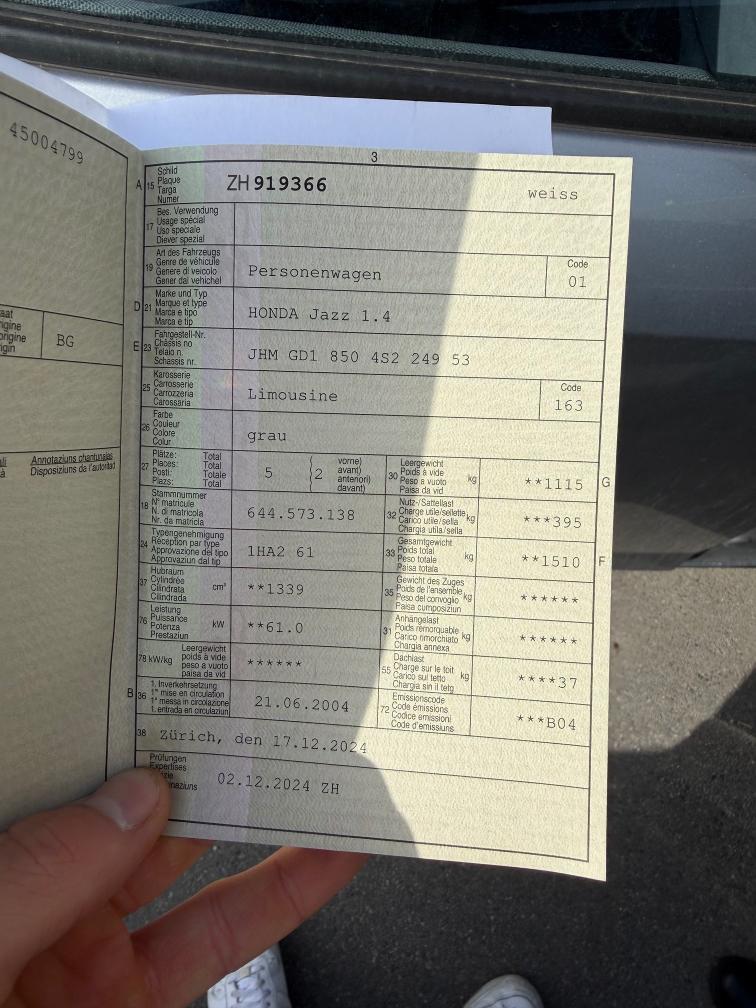 45004799
BG
Annotaziuns chantunalas
Disposiziuns da l'autoritad
3
A 15 Schild
Plaque
Targa
Numer
ZH 919366 weiss
17 Bes. Verwendung
Usage spécial
Uso speciale
Diever spezial
19 Art des Fahrzeugs
Genre de véhicule
Genere di veicolo
Gener dal vehichel
Personenwagen
Code
01
D 21 Marke und Typ
Marque et type
Marca e tipo
Marca e tip
HONDA Jazz 1.4
E 23 Fahrgestell-Nr.
Châssis no
Telaio n.
Schassis nr.
JHM GD1 850 4S2 249 53
25 Karosserie
Carrosserie
Carrozzeria
Carossaria
Limousine
Code
163
26 Farbe
Couleur
Colore
Colur
grau
27 Plätze: Total
Places: Total
Posti: Totale
Plazs: Total
5 { 2 vorne)
avant)
anteriori)
davant)
30 Leergewicht
Poids à vide
Peso a vuoto
Paisa da vid
kg **1115 G
18 Stammnummer
N° matricule
N. di matricola
Nr. da matricla
644.573.138
32 Nutz-/Sattellast
Charge utile/sellette
Carico utile/sella
Chargia utila/sella
kg ***395
24 Typengenehmigung
Réception par type
Approvazione del tipo
Approvaziun dal tip
1HA2 61
33 Gesamtgewicht
Poids total
Peso totale
Paisa totala
kg **1510 F
37 Hubraum
Cylindrée
Cilindrata
Cilindrada
cm³ **1339
35 Gewicht des Zuges
Poids de l'ensemble
Peso del convoglio
Paisa cumposiziun
kg ******
76 Leistung
Puissance
Potenza
Prestaziun
kW **61.0
31 Anhängelast
Poids remorquable
Carico rimorchiato
Chargia annexa
kg ******
78 kW/kg Leergewicht
poids à vide
peso a vuoto
paisa da vid
******
55 Dachlast
Charge sur le toit
Carico sul tetto
Chargia sin il tetg
kg ****37
B 36 1. Inverkehrsetzung
1re mise en circulation
1a messa in circolazione
1. entrada en circulaziun
21.06.2004
72 Emissionscode
Code émissions
Codice emissioni
Code d'emissiuns
***B04
38 Zürich, den 17.12.2024
Prüfungen
Expertises
02.12.2024 ZH